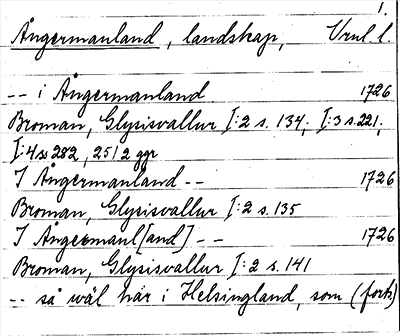 1.
Ångermanland, landskap, Vrul.l.
-- i Ångermanland 1726
Broman, Glysisvallur I:2 s. 134; I:3 s. 221;
I:4 s. 282, 251 2 ggr
I Ångermanland -- 1726
Broman, Glysisvallur I:2 s. 135
I Ångermanl[and] -- 1726
Broman, Glysisvallur I:2 s. 141
-- så wäl här i Helsingland, som (forts)